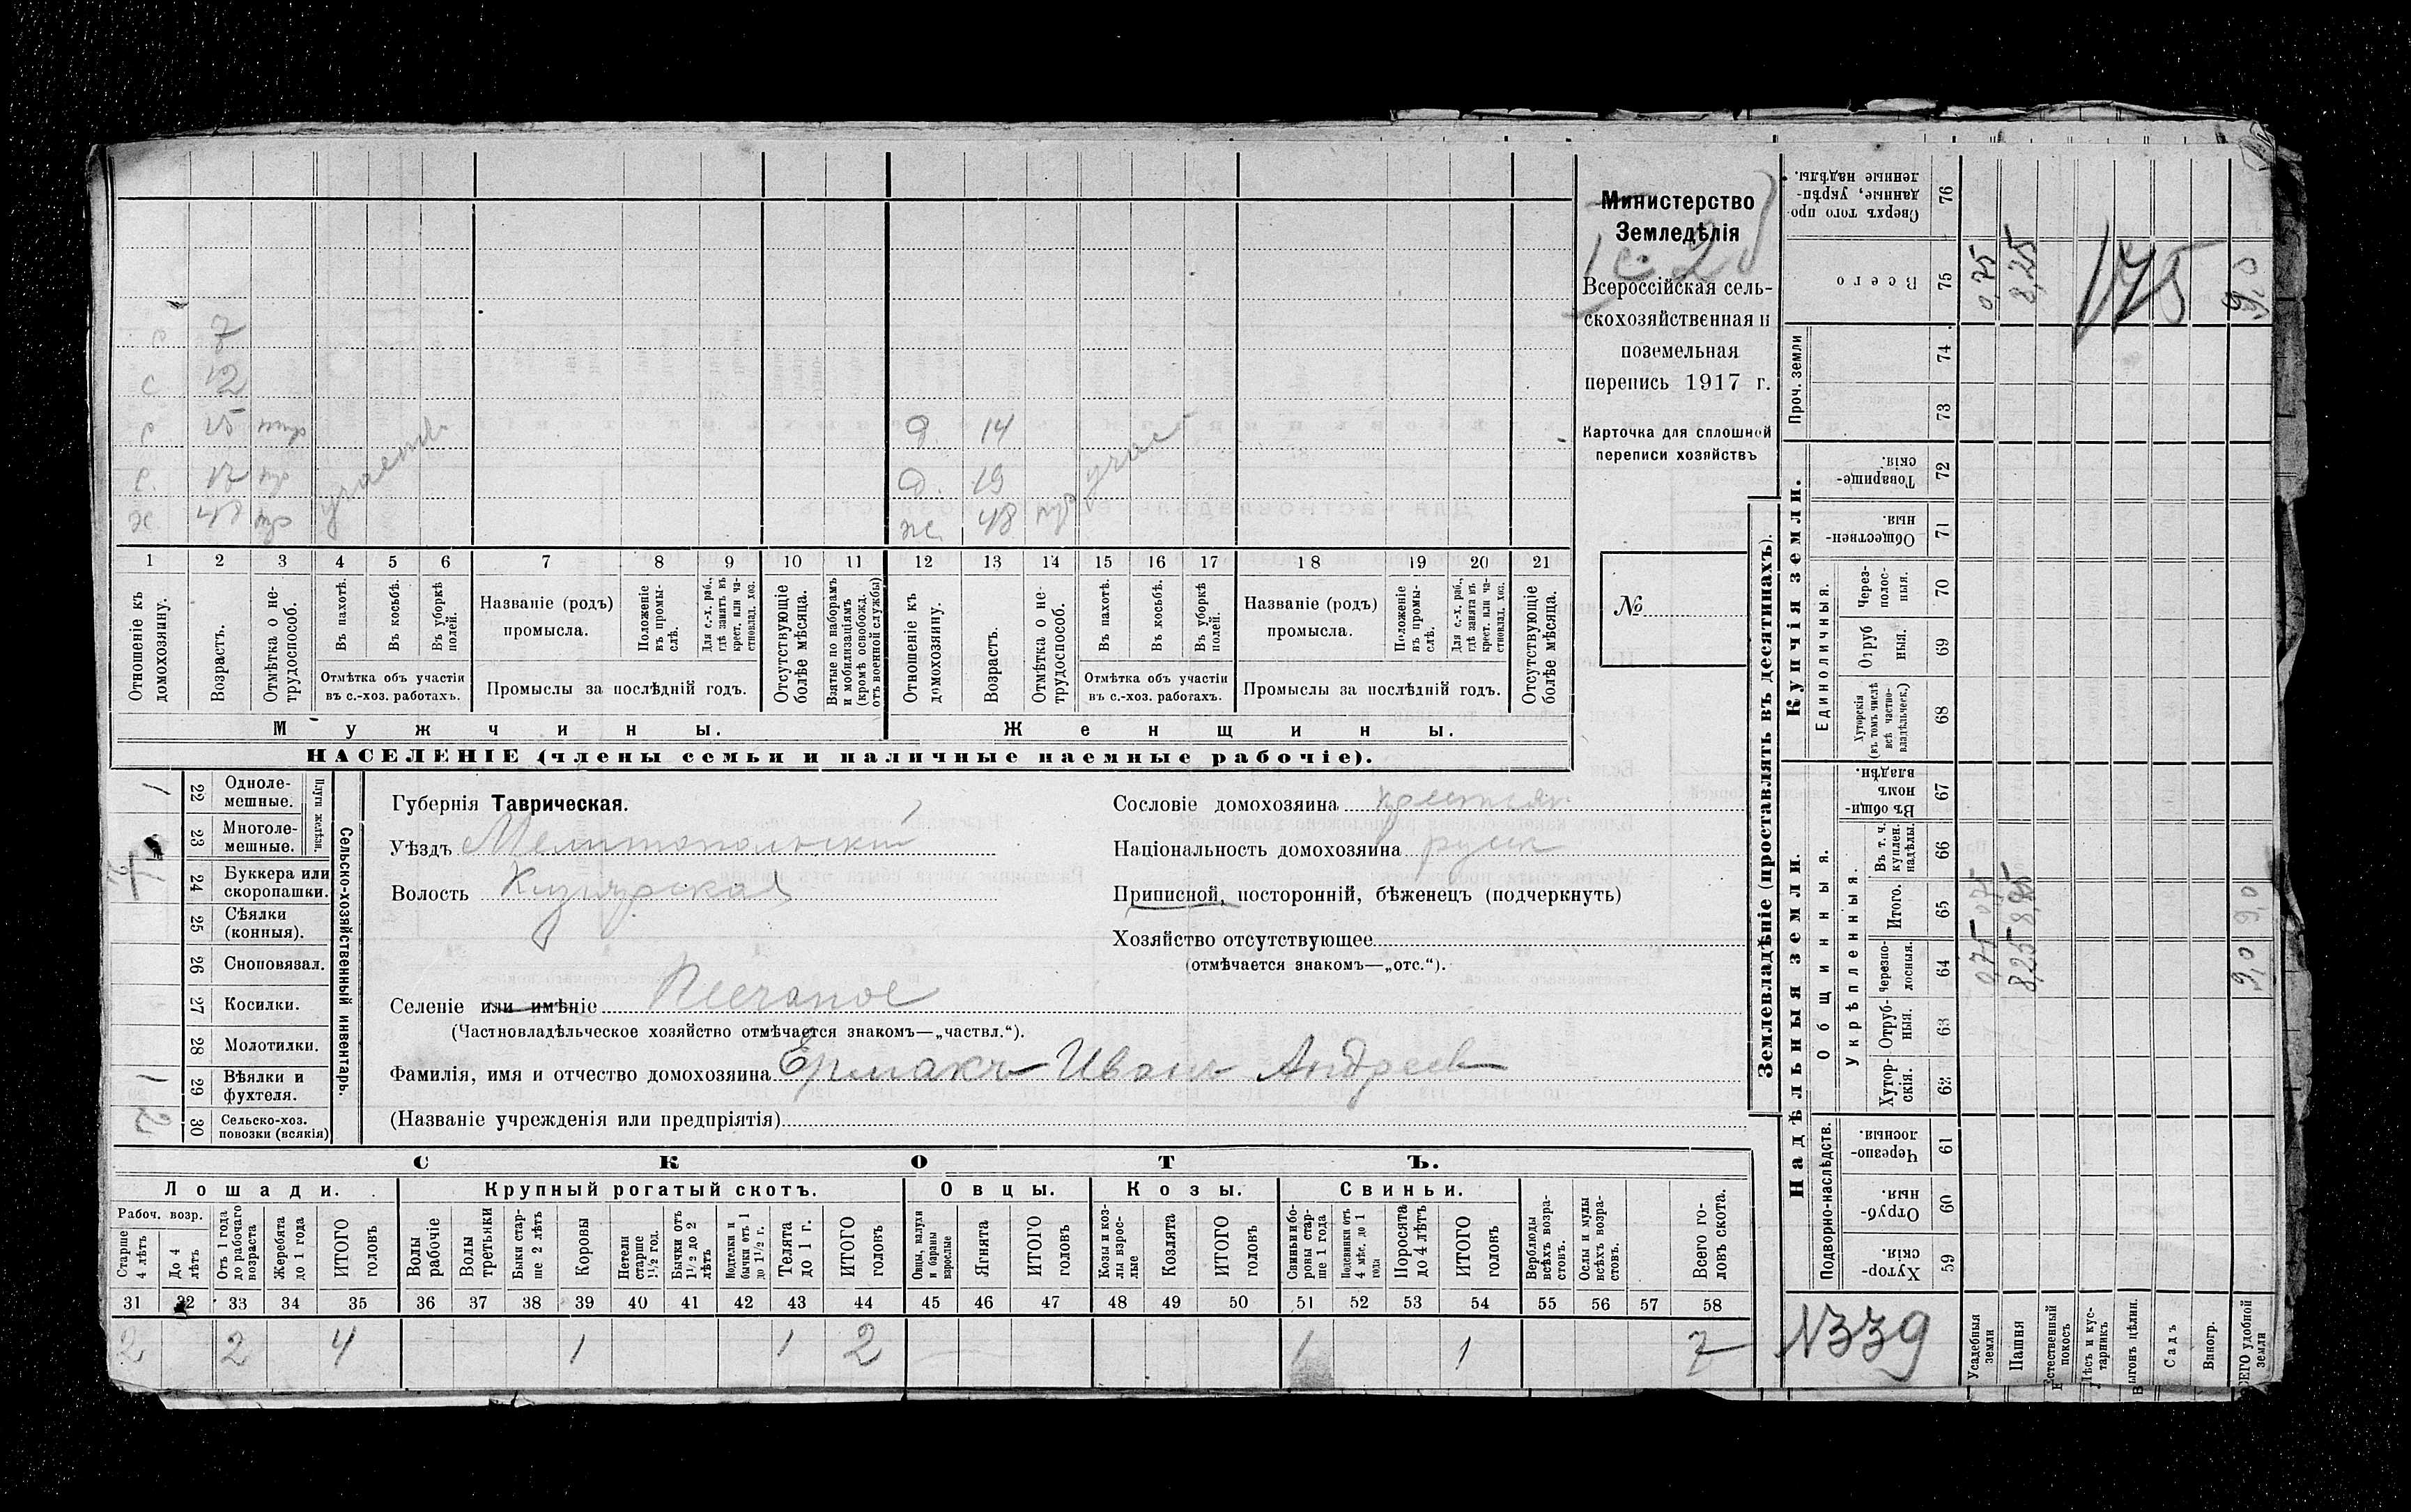 с 7
с 12
с 15
с. 17
х 48
участв
д. 14
д. 19
ж. 48
участ
1 2 3 4 5 6 7 8 9 10 11 12 13 14 15 16 17 18 19 20 21
Отношеніе къ домохозяину.
Возрастъ.
Отмѣтка о нетрудоспособ.
Въ пахотѣ.
Въ косьбѣ.
Въ уборкѣ полей.
Отмѣтка объ участіи
въ с.-хоз. работахъ.
Названіе (родъ)
промысла.
Положеніе въ промыслѣ.
Для с.-х. раб., гдѣ занятъ въ крест. или частновлад. хоз.
Промыслы за послѣдній годъ.
Отсутствующіе болѣе мѣсяца.
Взятые по наборамъ и мобилизаціямъ (кромѣ освобожд. отъ военной службы)
Отношеніе къ домохозяину.
Возрастъ.
Отмѣтка о нетрудоспособ.
Въ пахотѣ.
Въ косьбѣ.
Въ уборкѣ полей.
Отмѣтка объ участіи
въ с.-хоз. работахъ.
Названіе (родъ)
промысла.
Положеніе въ промыслѣ.
Для с.-х. раб., гдѣ занята въ крест. или частновлад. хоз.
Промыслы за послѣдній годъ.
Отсутствующіе болѣе мѣсяца.
Мужчины.
Женщины.
НАСЕЛЕНІЕ (члены семьи и наличные наемные рабочіе).
Министерство
Земледѣлія
Всероссійская сель-
скохозяйственная и
поземельная
перепись 1917 г.
Карточка для сплошной
переписи хозяйствъ
№
1 22 Одноле-
мешные.
23 Многоле-
мешные.
Плуги желѣзн.
24 Буккера или
скоропашки.
25 Сѣялки
(конныя).
26 Сноповязал.
27 Косилки.
28 Молотилки.
1 29 Вѣялки и
фухтеля.
2 30 Сельско-хоз.
повозки (всякія)
Сельско-хозяйственный инвентарь.
Губернія Таврическая.
Уѣздъ Мелитопольскій
Волость Кизиярская
Селеніе или имѣніе Песчаное
(Частновладѣльческое хозяйство отмѣчается знакомъ—„частвл.“).
Фамилія, имя и отчество домохозяина Ермакъ Иванъ Андреев
(Названіе учрежденія или предпріятія)
Сословіе домохозяина крестьян
Національность домохозяина русск
Приписной, посторонній, бѣженецъ (подчеркнуть)
Хозяйство отсутствующее
(отмѣчается знакомъ—„отс.“).
СКОТЪ.
Лошади. Крупный рогатый скотъ. Овцы. Козы. Свиньи.
Рабоч. возр.
Старше 4 лѣтъ
До 4 лѣтъ
Отъ 1 года до рабочаго возраста
Жеребята до 1 года
ИТОГО головъ
Волы рабочіе
Волы третьяки
Быки старше 2 лѣтъ
Коровы
Нетели старше 1½ год.
Бычки отъ 1½ до 2 лѣтъ
Подтелки и бычки отъ 1 до 1½ г.
Телята до 1 г.
ИТОГО головъ
Овцы, валухи и бараны взрослые
Ягнята
ИТОГО головъ
Козы и козлы взрослые
Козлята
ИТОГО головъ
Свиньи и боровы старше 1 года
Подсвинки отъ 4 мѣс. до 1 года
Поросята до 4 лѣтъ
ИТОГО головъ
Верблюды всѣхъ возрастовъ.
Ослы и мулы всѣхъ возрастовъ.
Всего головъ скота.
31 32 33 34 35 36 37 38 39 40 41 42 43 44 45 46 47 48 49 50 51 52 53 54 55 56 57 58
2 2 4 1 1 2 1 1 7
Землевладѣніе (проставлять въ десятинахъ).
Купчія земли.
Надѣльныя земли.
Сверхъ того проданные, укрѣпленные надѣлы. 76
Всего 75 0,75 8,25 9,0
175
Проч. земли 74 73
Товарищескія. 72
Общественныя. 71
Единоличныя.
Черезполосныя. 70
Отрубныя. 69
Хуторскія (въ томъ числѣ всѣ частновладѣльческ.) 68
Общинныя.
Въ общинномъ владѣн. 67
Укрѣпленныя.
Въ т. ч. куплен. надѣлы. 66
Итого. 65 0,75 8,25 9,0
Черезполосныя. 64 0,75 8,25 9,0
Отрубныя. 63
Хуторскія. 62
Подворно-наслѣдств.
Черезполосныя. 61
Отрубныя. 60
Хуторскія. 59
N339
Усадебныя земли
Пашня
Естественный покосъ
Лѣсъ и кустарникъ
Выгонъ цѣлин.
Садъ
Виногр.
ВСЕГО удобной земли